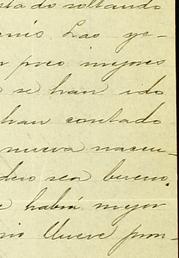 sta do soltando
enis Las ye-
r poco mejores
e se han ido
han contado
nueva nacen-
dero sea bueno.
e habrá mejor
rio llueve pron-